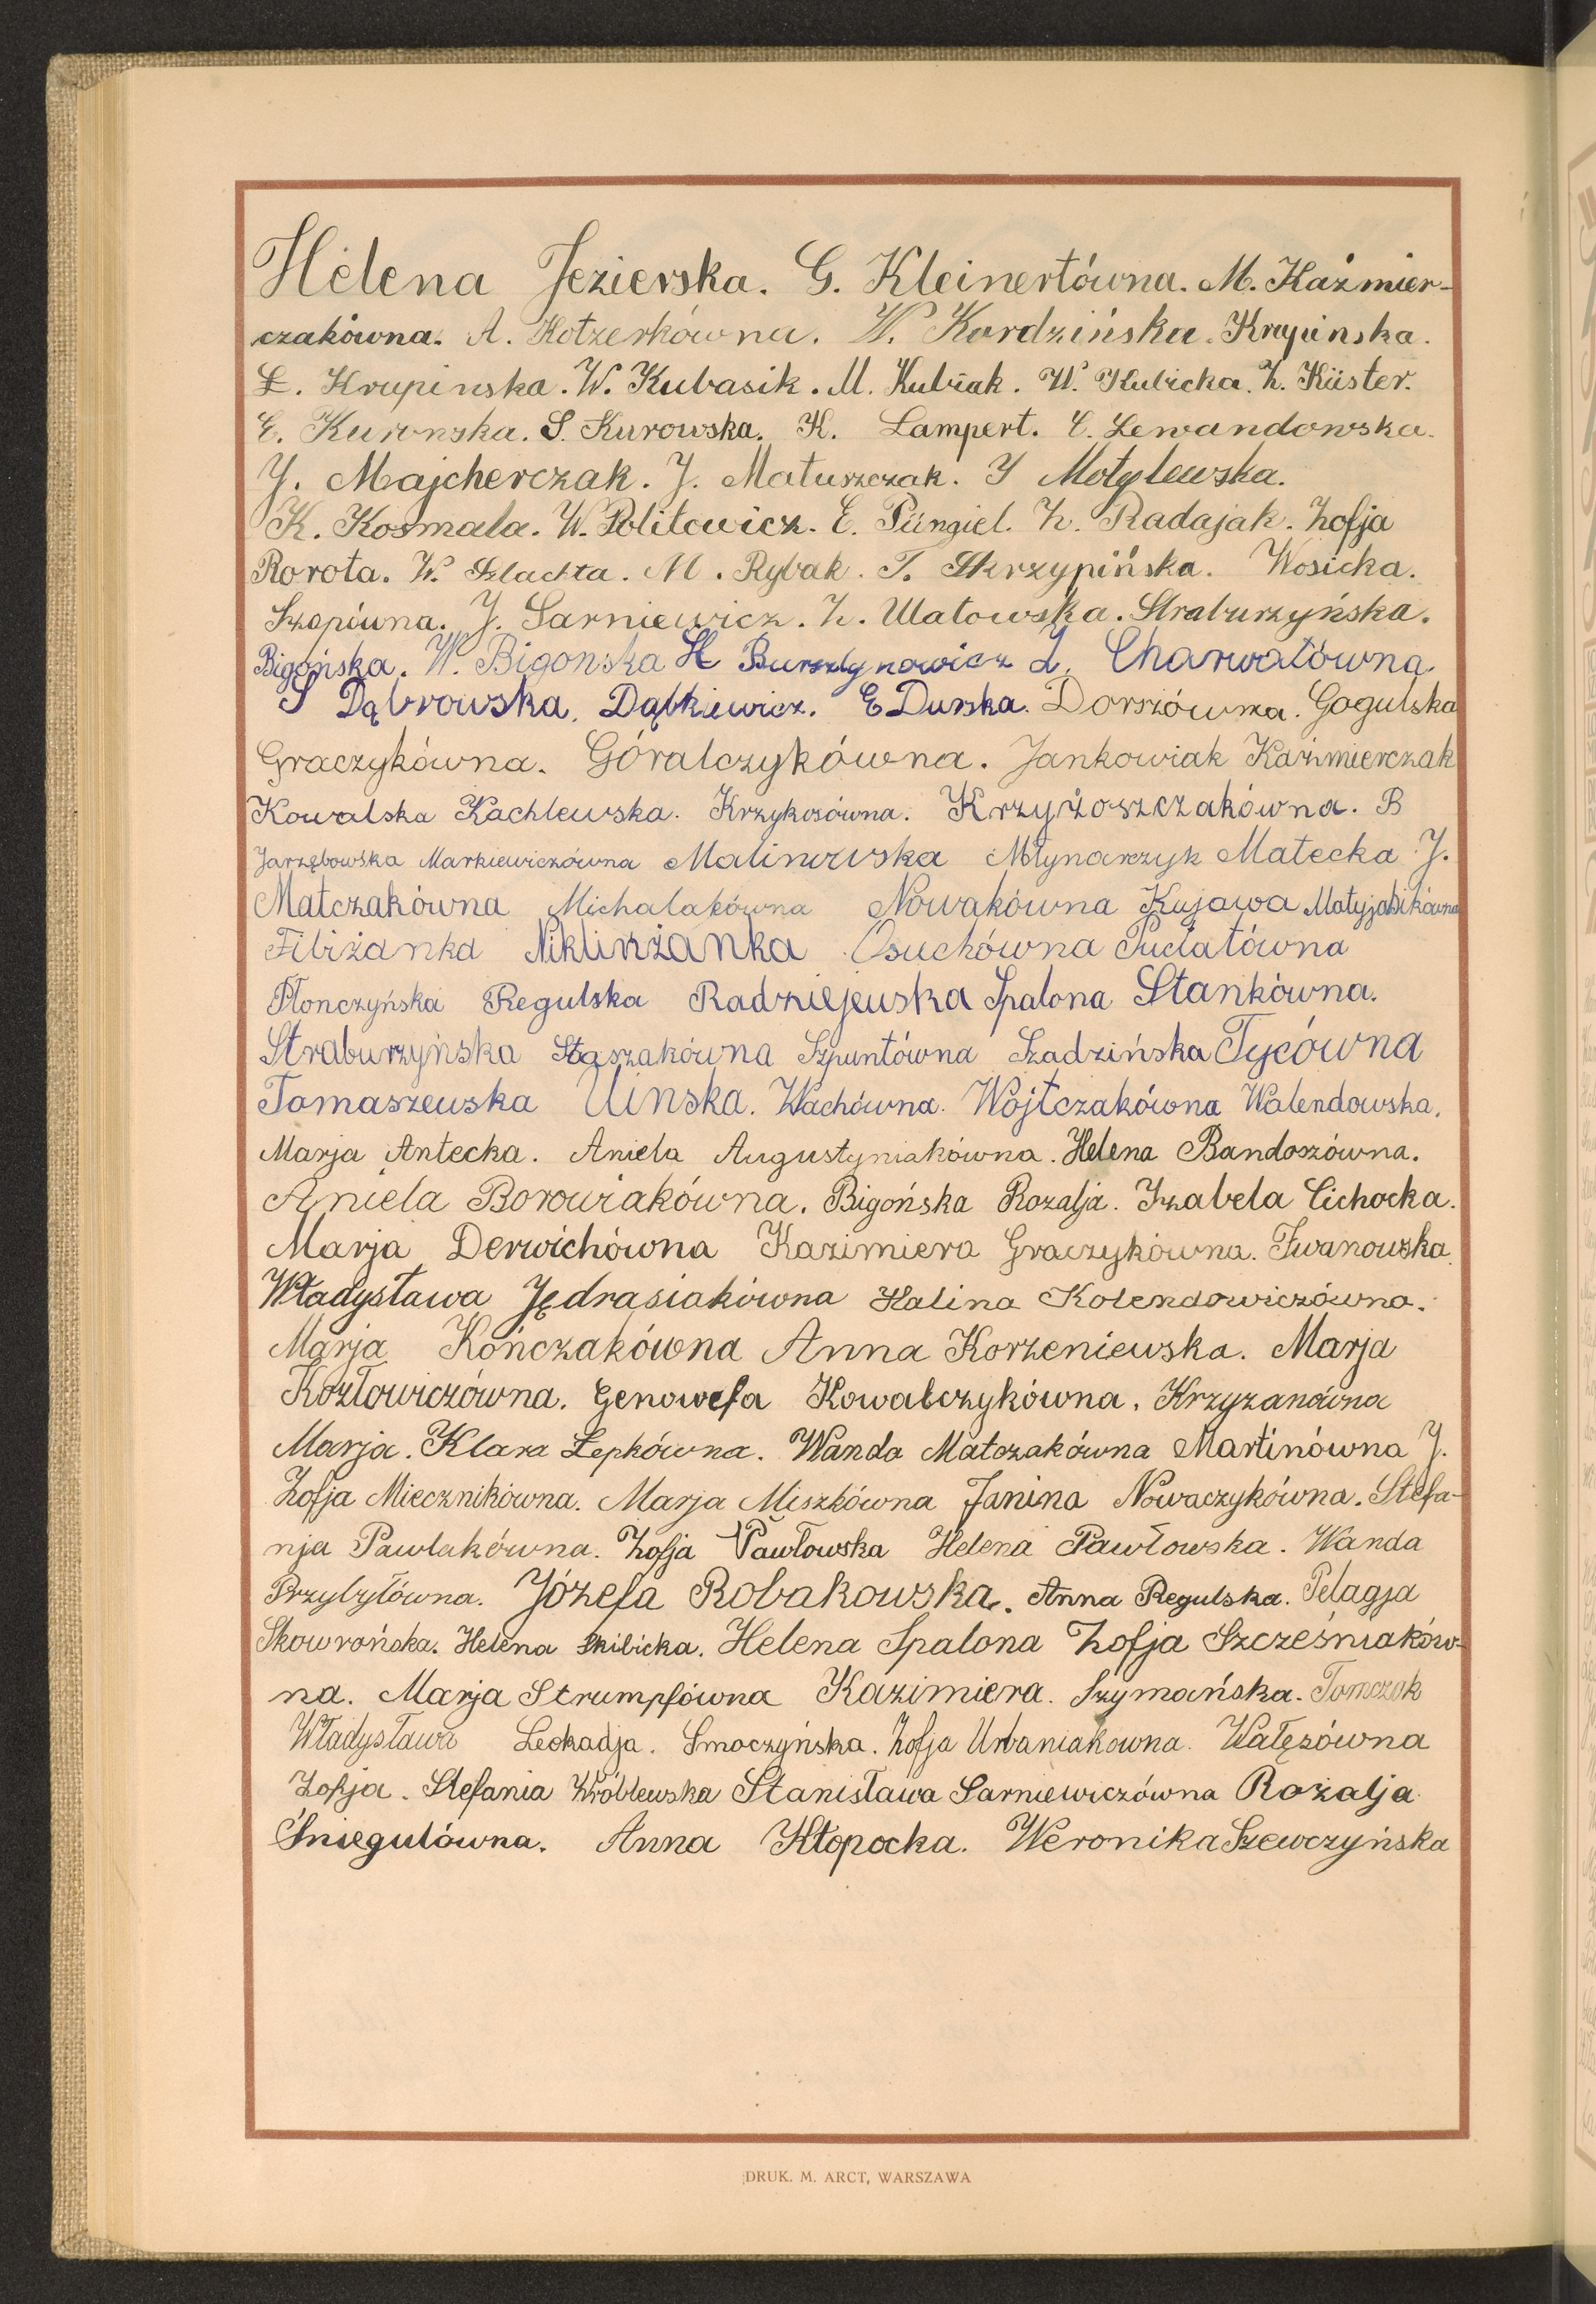 Helena Jezierska. G. Kleinertówna. M. Kaźmier-
czakówna. A. Kotzerkówna. W. Kordzińska. Krupinska.
Ł. Krupinska. W. Kubasik. M. Kubiak. W. Kubicka. Z. Küster.
E. Kuronska. S. Kurowska. K. Lampert. E. Lewandowska.
J. Majcherczak. J. Matuszczak. J Motylewska.
K. Kosmala. W. Politowicz. E. Püngiel. Z. Radajak. Zofja
Rorota. W. Szlachta. M. Rybak. T. Skrzypińska. Wosicka.
Szopówna. J. Sarniewicz. Z. Ulatowska. Straburzyńska.
Bigońska. W. Bigonska H Bursztynowicz L. Charwatówna
S Dąbrowska. Dąbkiewicz. E Durska. Dorszówna. Gogulska
Graczykówna. Góralczykówna. Jankowiak Kaźmierczak
Kowalska Kachlewska. Krzykosówna. Krzyżoszczakówna. B
Jarzębowska Markiewiczówna Malinowska Młynarczyk Matecka J.
Matczakówna Michalakówna Nowakówna Kujawa Matyjasikówna
Fibiżanka Niklinżanka Osuchówna Puciatówna
Płonczyńska Regulska Radziejewska Spalona Stankówna.
Straburzyńska Staszakówna Szpuntówna Szadzińska Tycówna
Tomaszewska Uinska. Wachówna. Wojtczakówna Walendowska.
Marja Antecka. Aniela Augustyniakówna. Helena Bandoszówna.
Aniela Borowiakówna. Bigońska Rozalja. Izabela Cichocka.
Marja Derwichówna Kazimiera Graczykówna. Iwanowska
Władysława Jędrasiakówna Halina Kolendowiczówna.
Marja Kończakówna Anna Korzeniewska. Marja
Kozłowiczówna. Genowefa Kowalczykówna. Krzyzanówna
Marja. Klara Łepkówna. Wanda Matczakówna Martinówna J.
Zofja Miecznikówna. Marja Miszkówna Janina Nowaczykówna. Stefa-
nja Pawlakówna. Zofja Pawłowska Helena Pawłowska. Wanda
Przybyłówna. Józefa Robakowska. Anna Regulska. Pelagja
Skowrońska. Helena Skibicka. Helena Spalona Zofja Szcześniaków-
na. Marja Strumpfówna Kazimiera. Szymańska. Tomczak
Władysława Leokadja. Smoczyńska. Zofja Urbaniakowna. Wałęzówna
Zofja. Stefania Wróblewska Stanisława Sarniewiczówna Rozalja
Śniegulówna. Anna Kłopocka. Weronika Szewczyńska
DRUK. M. ARCT, WARSZAWA